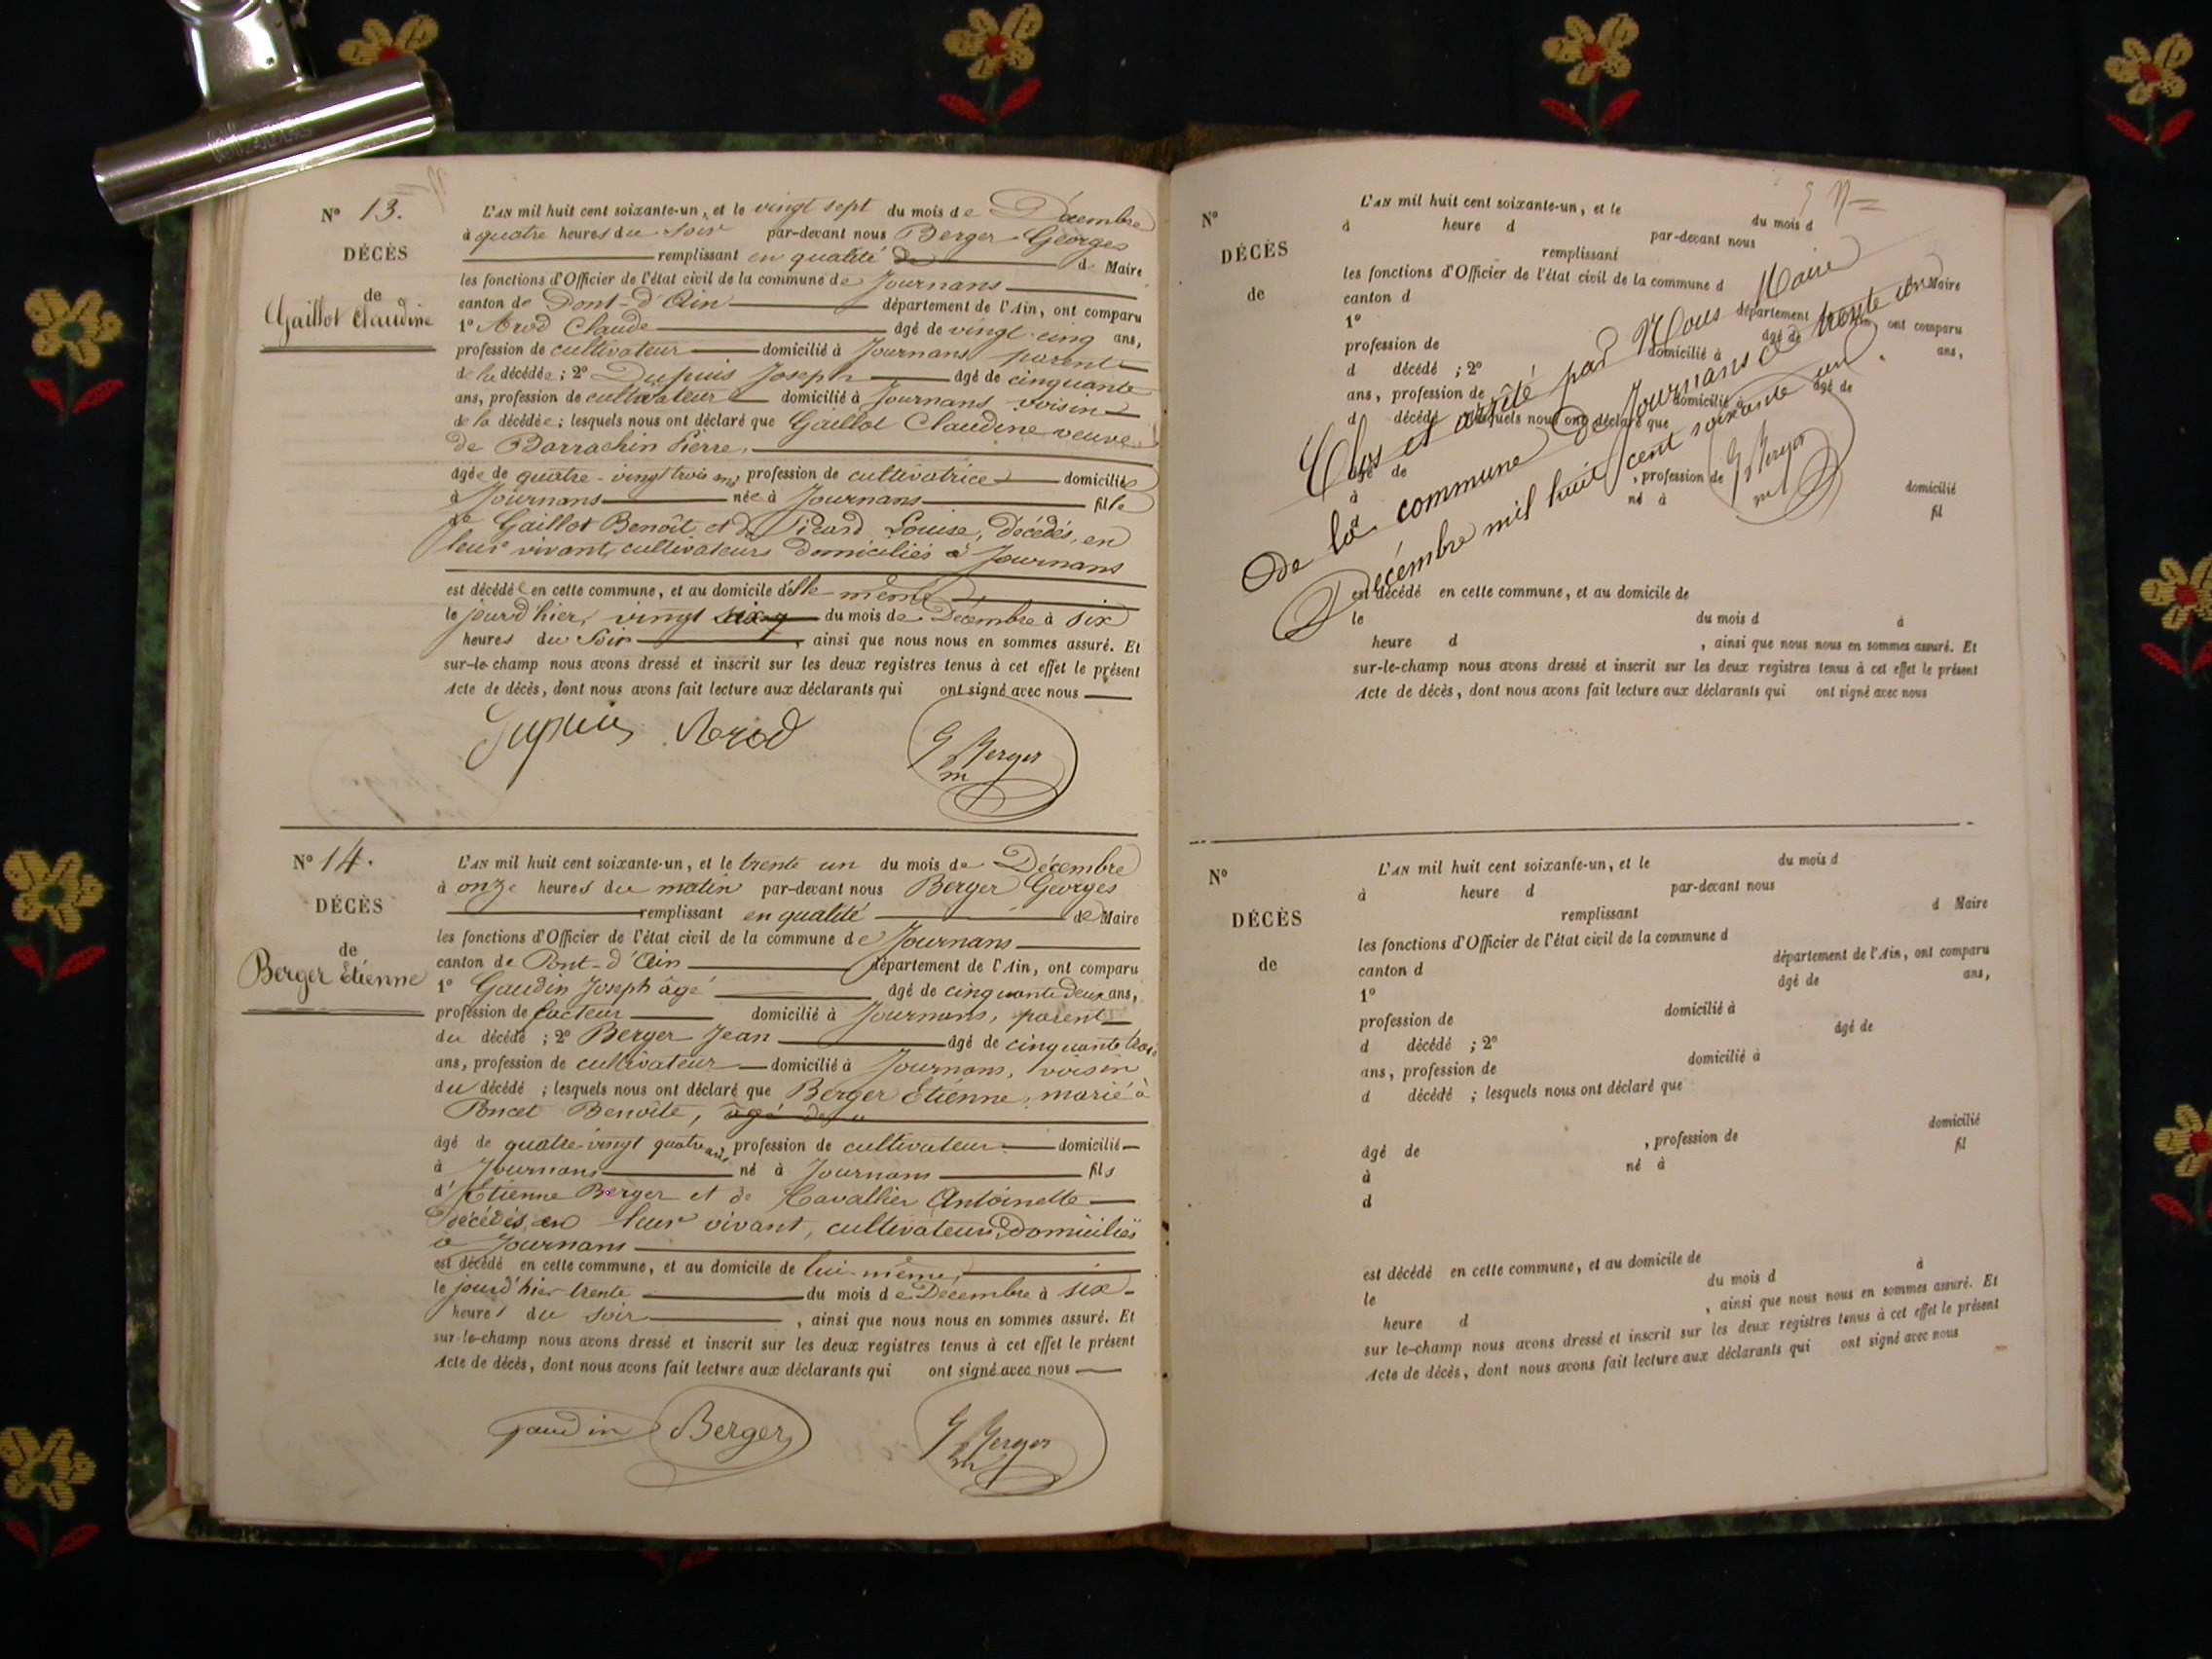 N° 13.
DÉCÈS
de
Gaillot Claudine
L'AN mil huit cent soixante-un, et le vingt sept du mois de Décembre
à quatre heures du soir par-devant nous Berger Georges
remplissant en qualité de Maire
les fonctions d'Officier de l'état civil de la commune de Journans
canton de Pont-d'Ain département de l'Ain, ont comparu
1° Arod Claude âgé de vingt-cinq ans,
profession de cultivateur domicilié à Journans parent
de la décédée; 2° Dupuis Joseph âgé de cinquante
ans, profession de cultivateur domicilié à Journans voisin
de la décédée; lesquels nous ont déclaré que Gaillot Claudine veuve
de Barrachin Pierre,
âgée de quatre-vingt trois ans, profession de cultivatrice domiciliée
à Journans née à Journans fille
de Gaillot Benoît et de Picard Louise, Décédés, en
leur vivant, cultivateurs domiciliés à Journans
est décédée en cette commune, et au domicile d'elle-même
le jourd'hier, vingt six du mois de Décembre à six
heures du soir, ainsi que nous nous en sommes assuré. Et
sur-le-champ nous avons dressé et inscrit sur les deux registres tenus à cet effet le présent
Acte de décès, dont nous avons fait lecture aux déclarants qui ont signé avec nous
Dupuis Arod G Berger
m
N° 14.
DÉCÈS
de
Berger Etienne
L'AN mil huit cent soixante-un, et le trente un du mois de Décembre
à onze heures du matin par-devant nous Berger Georges
remplissant en qualité de Maire
les fonctions d'Officier de l'état civil de la commune de Journans
canton de Pont-d'Ain département de l'Ain, ont comparu
1° Gaudin Joseph âgé âgé de cinquante deux ans,
profession de facteur domicilié à Journans, parent
du décédé; 2° Berger Jean âgé de cinquante trois
ans, profession de cultivateur domicilié à Journans, voisin
du décédé; lesquels nous ont déclaré que Berger Etienne, marié à
Poncet Benoîte, âgé de
âgé de quatre-vingt quatre ans, profession de cultivateur domicilié
à Journans né à Journans fils
d'Etienne Berger et de Cavallier Antoinette
décédés, en leur vivant, cultivateurs, domiciliés
à Journans
est décédé en cette commune, et au domicile de lui-même,
le jourd'hier trente du mois de Décembre à six
heures du soir, ainsi que nous nous en sommes assuré. Et
sur-le-champ nous avons dressé et inscrit sur les deux registres tenus à cet effet le présent
Acte de décès, dont nous avons fait lecture aux déclarants qui ont signé avec nous
Gaudin Berger G Berger
m
N°
DÉCÈS
de
L'AN mil huit cent soixante-un, et le du mois d
à heure d par-devant nous
remplissant d Maire
les fonctions d'Officier de l'état civil de la commune d
canton d département de l'Ain, ont comparu
1° âgé de ans,
profession de domicilié à
d décédé ; 2° âgé de
ans, profession de domicilié à
d décédé ; lesquels nous ont déclaré que
âgé de , profession de domicilié
à né à fil
d
Clos et arrêté par Nous Maire
de la commune de Journans ce trente un
Décembre mil huit cent soixante un.
G Berger
m
est décédé en cette commune, et au domicile de
le du mois d à
heure d , ainsi que nous nous en sommes assuré. Et
sur-le-champ nous avons dressé et inscrit sur les deux registres tenus à cet effet le présent
Acte de décès, dont nous avons fait lecture aux déclarants qui ont signé avec nous
N°
DÉCÈS
de
L'AN mil huit cent soixante-un, et le du mois d
à heure d par-devant nous
remplissant d Maire
les fonctions d'Officier de l'état civil de la commune d
canton d département de l'Ain, ont comparu
1° âgé de ans,
profession de domicilié à
d décédé ; 2° âgé de
ans, profession de domicilié à
d décédé ; lesquels nous ont déclaré que
âgé de , profession de domicilié
à né à fil
d
est décédé en cette commune, et au domicile de
le du mois d à
heure d , ainsi que nous nous en sommes assuré. Et
sur-le-champ nous avons dressé et inscrit sur les deux registres tenus à cet effet le présent
Acte de décès, dont nous avons fait lecture aux déclarants qui ont signé avec nous